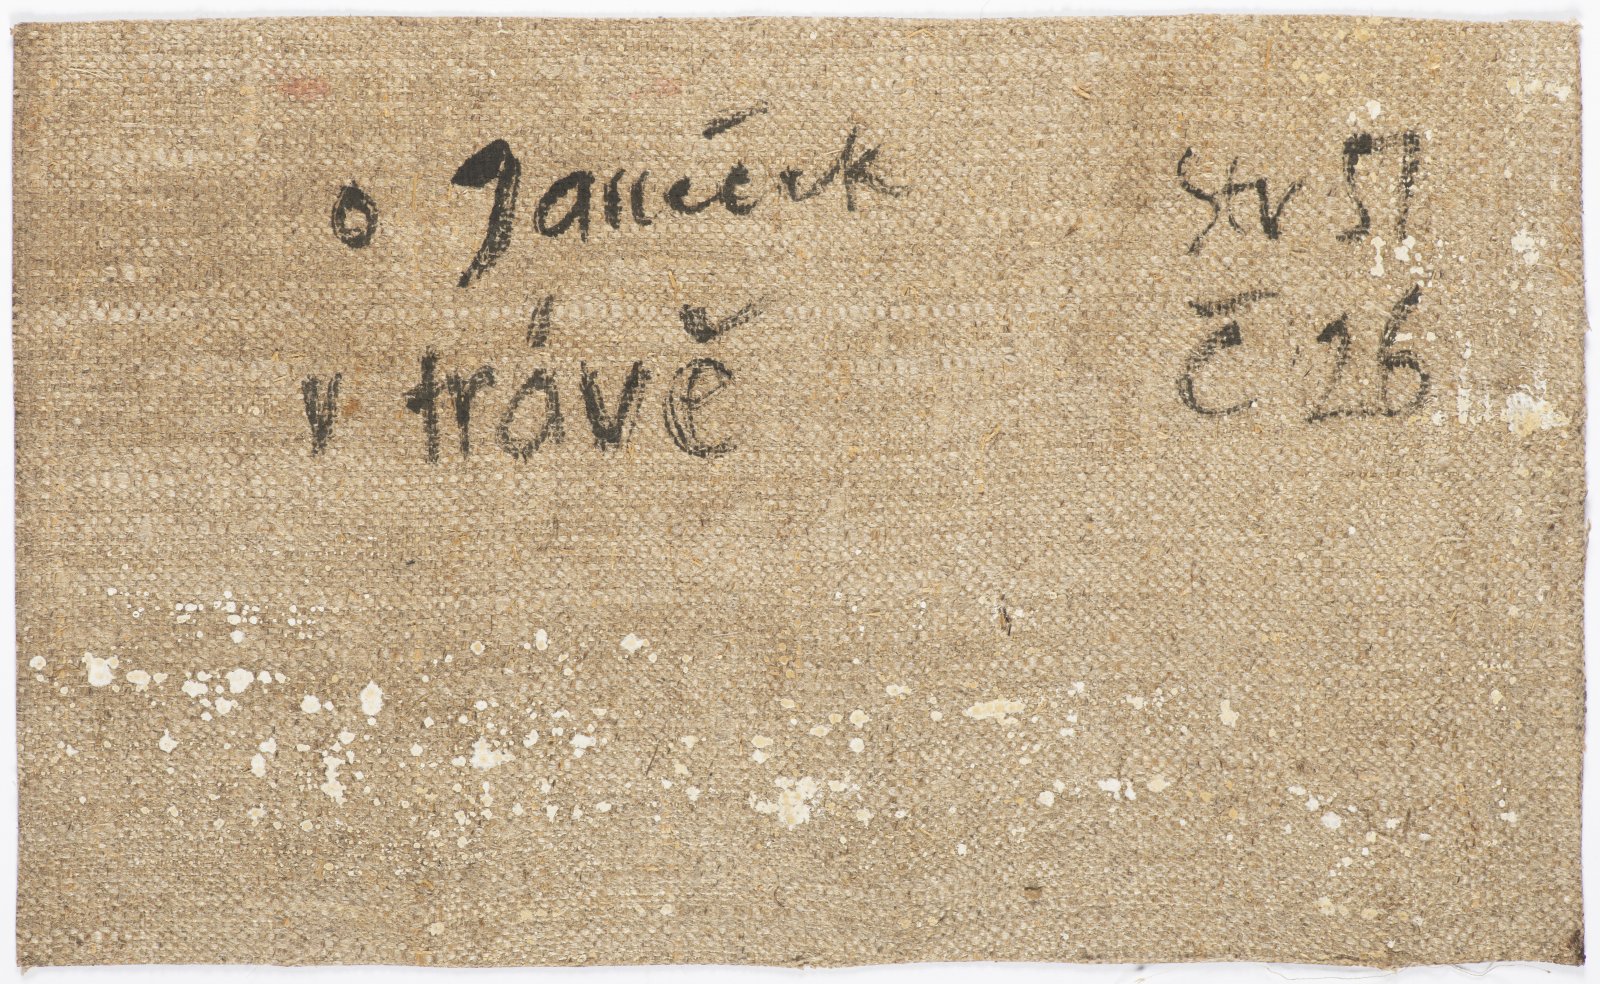 o Janeček
v trávě
str 51
č 26